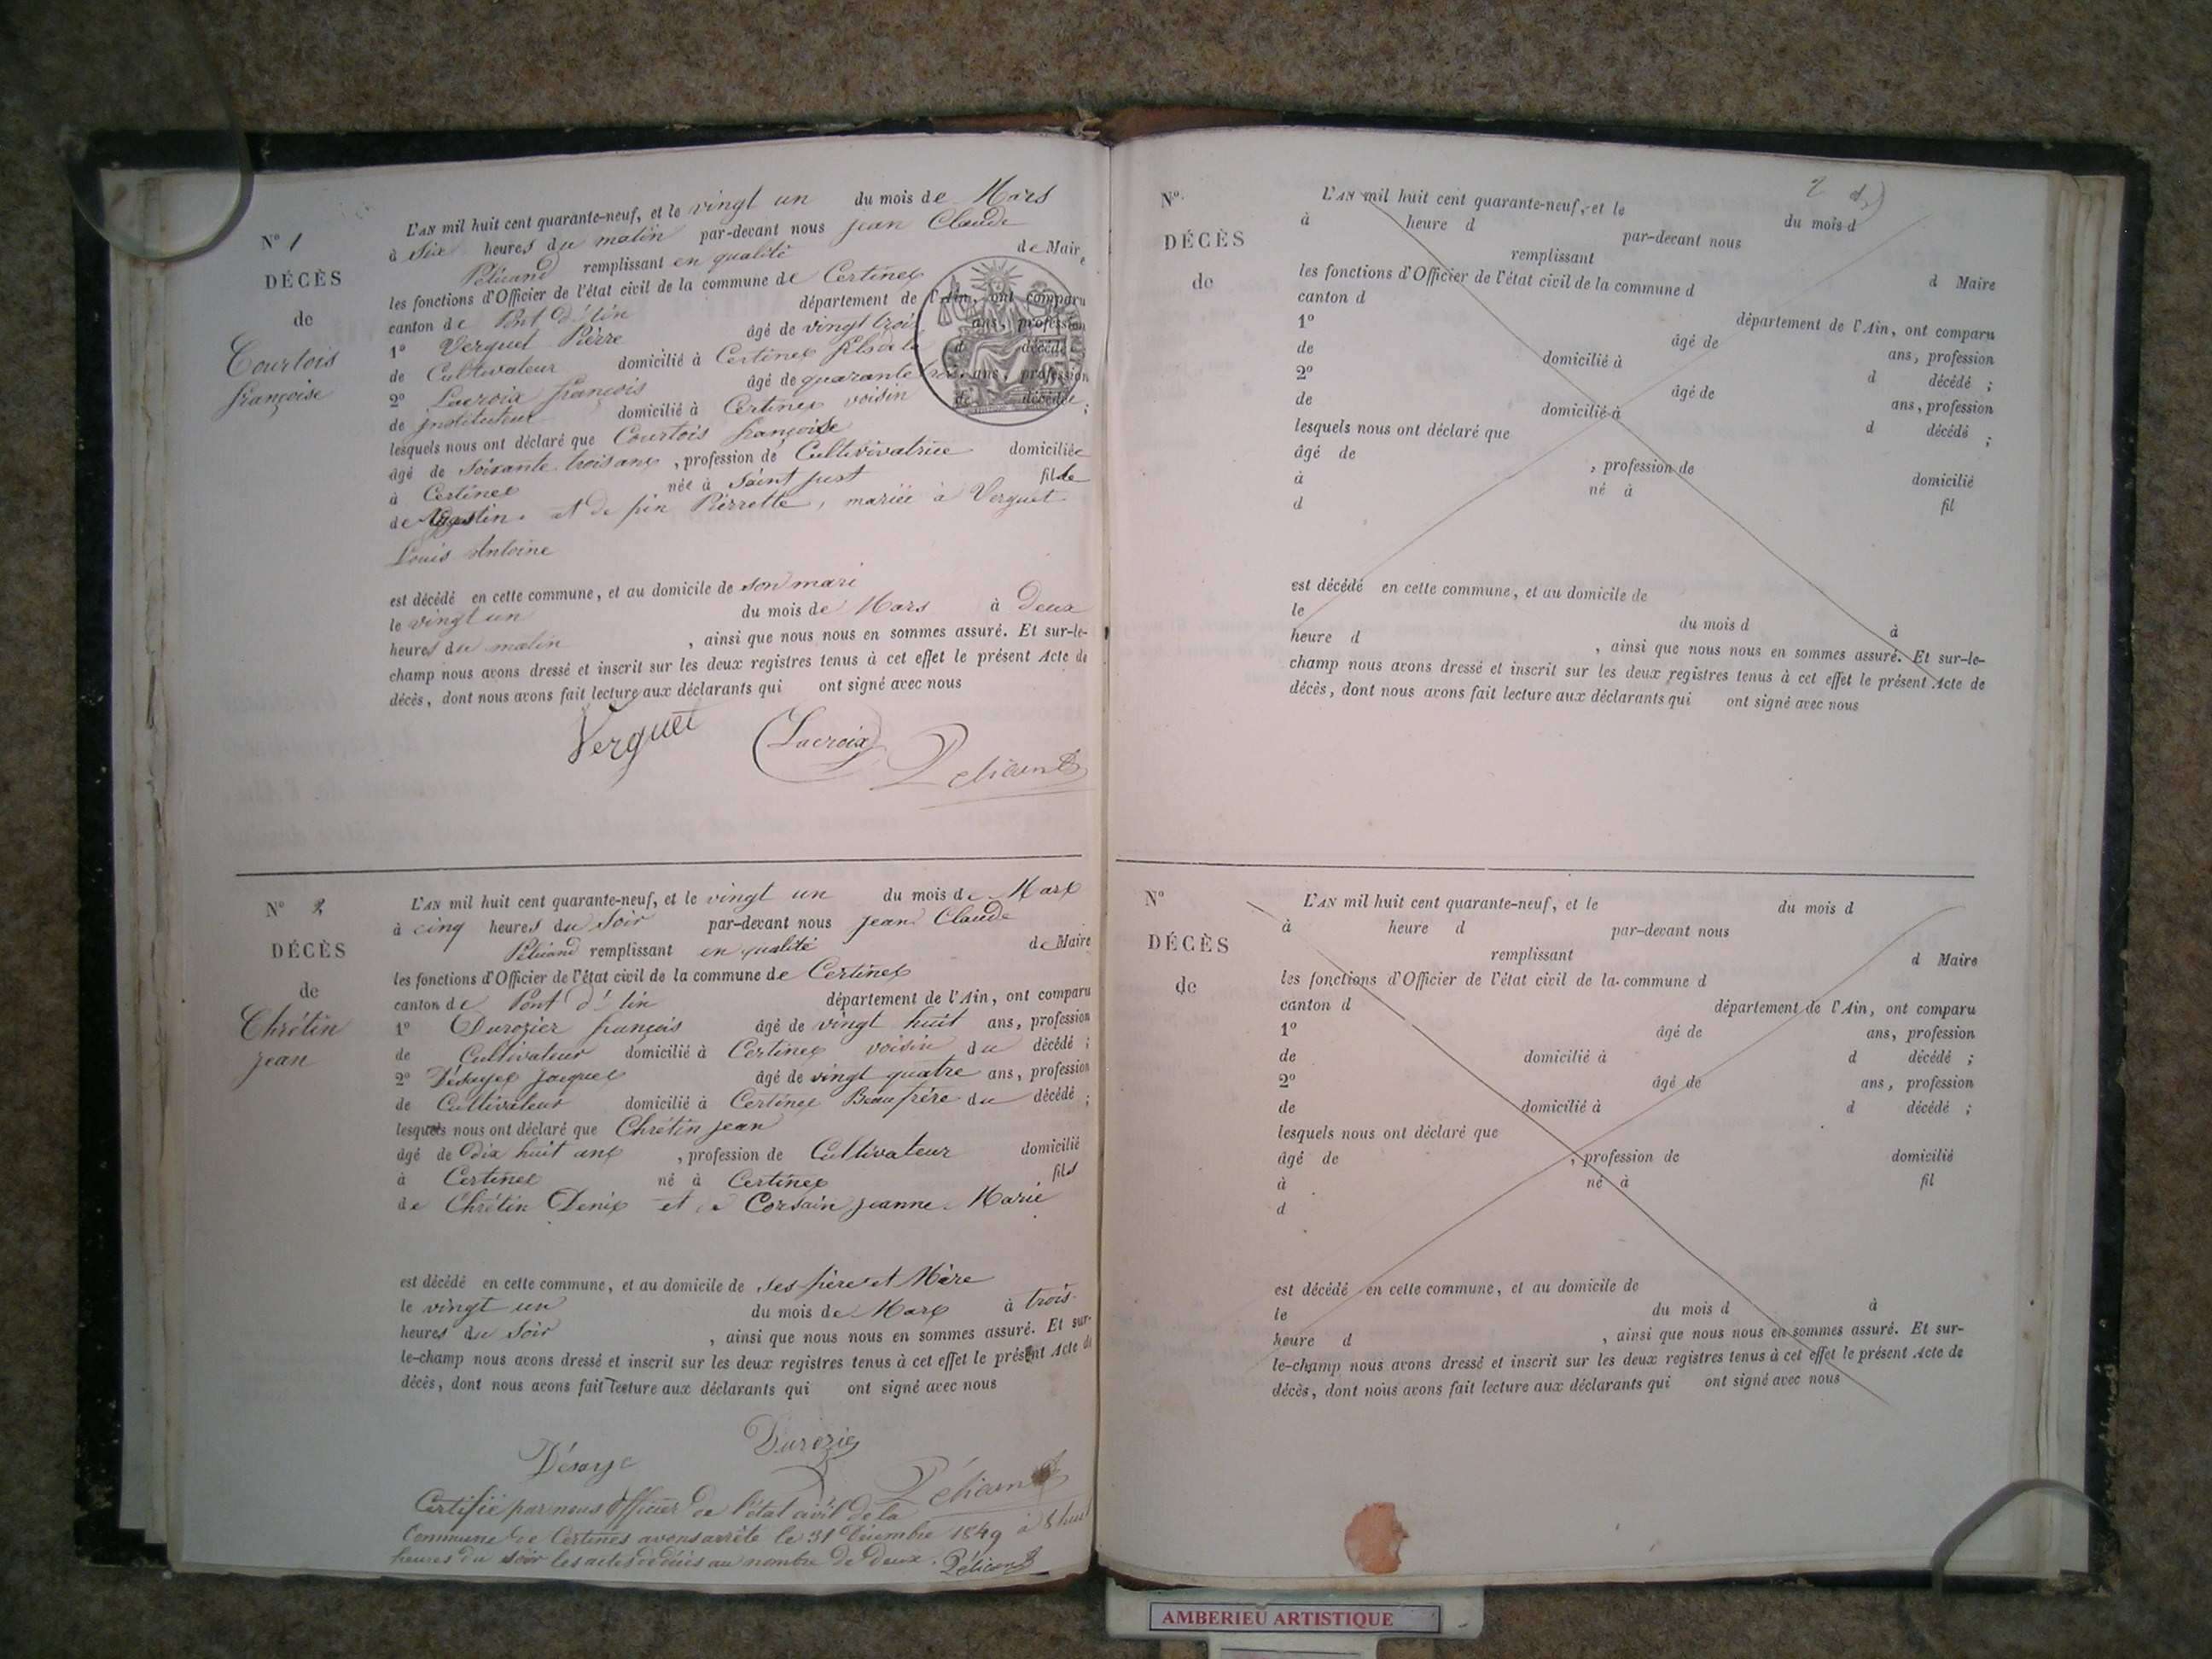 N° 1
DÉCÈS
de
Courtois
françoise
L'AN mil huit cent quarante-neuf, et le vingt un du mois de Mars
à Six heures du matin par-devant nous jean Claude
Pélicand remplissant en qualité de Maire
les fonctions d'Officier de l'état civil de la commune de Certines
canton de Pont d'Ain département de l'Ain, ont comparu
1° Verguet Pierre âgé de vingt trois ans, profession
de Cultivateur domicilié à Certines fils de la décédé
2° Lacroix françois âgé de quarante trois ans, profession
de jnstituteur domicilié à Certines voisin de décédée ;
lesquels nous ont déclaré que Courtois françoise
âgé de Soixante trois ans , profession de Cultivivatrice domiciliée
à Certines née à Saint just fille
de et de pin Pierrette, mariée à Verguet
Louis Antoine
est décédé en cette commune, et au domicile de son mari
le vingt un du mois de Mars à Deux
heures du matin , ainsi que nous nous en sommes assuré. Et sur-le-
champ nous avons dressé et inscrit sur les deux registres tenus à cet effet le présent Acte de
décès, dont nous avons fait lecture aux déclarants qui ont signé avec nous
Verguet Lacroix Pélicand
N° 2
DÉCÈS
de
Chrétin
jean
L'AN mil huit cent quarante-neuf, et le vingt un du mois de Mars
à cinq heures du Soir par-devant nous jean Claude
Pélicand remplissant en qualité de Maire
les fonctions d'Officier de l'état civil de la commune de Certines
canton de Pont d'Ain département de l'Ain, ont comparu
1° Durozier françois âgé de vingt huit ans, profession
de Cultivateur domicilié à Certines voisin du décédé ;
2° Désayes jacques âgé de vingt quatre ans, profession
de Cultivateur domicilié à Certines Beau frère du décédé ;
lesquels nous ont déclaré que Chrétin jean
âgé de dix huit ans , profession de Cultivateur domicilié
à Certines né à Certines fils
de Chrétin Denis et de Corsain jeanne Marie
est décédé en cette commune, et au domicile de ses père et Mère
le vingt un du mois de Mars à trois
heures du Soir , ainsi que nous nous en sommes assuré. Et sur-
le-champ nous avons dressé et inscrit sur les deux registres tenus à cet effet le présent Acte de
décès, dont nous avons fait lecture aux déclarants qui ont signé avec nous
Désaye Durozier Pélicand
Certifié par nous Officier de l'état civil de la
Commune de Certines avons arrêté le 31 Décembre 1849 à 8 huit
heures du soir les actes de décès au nombre de deux. Pélicand
2
N°
DÉCÈS
de
L'AN mil huit cent quarante-neuf, et le du mois d
à heure d par-devant nous
remplissant d Maire
les fonctions d'Officier de l'état civil de la commune d
canton d département de l'Ain, ont comparu
1° âgé de ans, profession
de domicilié à d décédé ;
2° âgé de ans, profession
de domicilié à d décédé ;
lesquels nous ont déclaré que
âgé de , profession de domicilié
à né à fil
d
est décédé en cette commune, et au domicile de
le du mois d à
heure d , ainsi que nous nous en sommes assuré. Et sur-le-
champ nous avons dressé et inscrit sur les deux registres tenus à cet effet le présent Acte de
décès, dont nous avons fait lecture aux déclarants qui ont signé avec nous
N°
DÉCÈS
de
L'AN mil huit cent quarante-neuf, et le du mois d
à heure d par-devant nous
remplissant d Maire
les fonctions d'Officier de l'état civil de la commune d
canton d département de l'Ain, ont comparu
1° âgé de ans, profession
de domicilié à d décédé ;
2° âgé de ans, profession
de domicilié à d décédé ;
lesquels nous ont déclaré que
âgé de , profession de domicilié
à né à fil
d
est décédé en cette commune, et au domicile de
le du mois d à
heure d , ainsi que nous nous en sommes assuré. Et sur-
le-champ nous avons dressé et inscrit sur les deux registres tenus à cet effet le présent Acte de
décès, dont nous avons fait lecture aux déclarants qui ont signé avec nous
AMBERIEU ARTISTIQUE